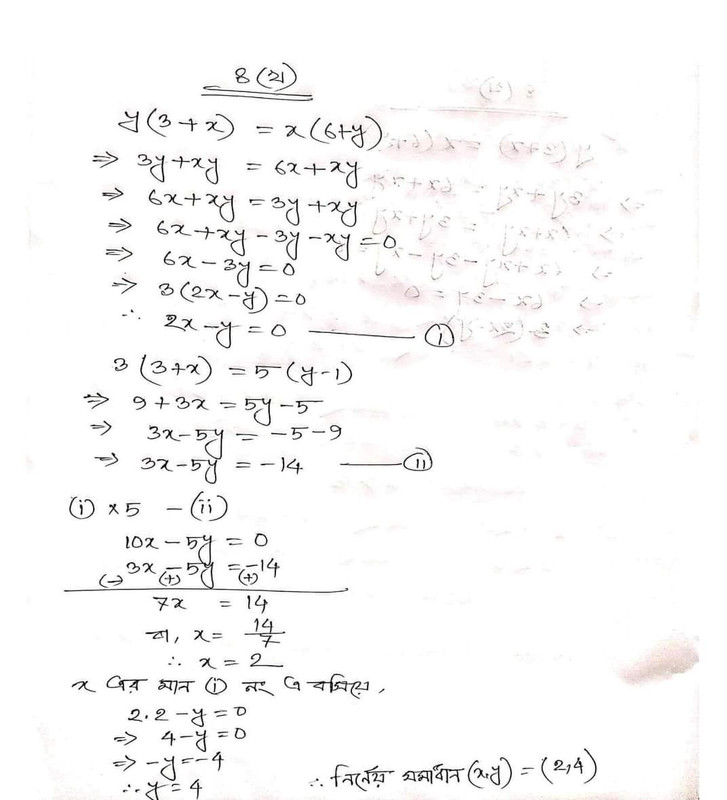 8 (খ)
y(3+x) = x(6+y)
⇒ 3y+xy = 6x+xy
⇒ 6x+xy = 3y+xy
⇒ 6x+xy-3y-xy=0
⇒ 6x-3y=0
⇒ 3(2x-y)=0
∴ 2x-y=0 ——— (i)
3(3+x) = 5(y-1)
⇒ 9+3x = 5y-5
⇒ 3x-5y = -5-9
⇒ 3x-5y = -14 ——— (ii)
(i) ×5 - (ii)
10x-5y = 0
(-) 3x (+)-5y = (+)-14
7x = 14
বা, x = 14/7
∴ x = 2
x এর মান (i) নং এ বসিয়ে,
2.2-y=0
⇒ 4-y=0
⇒ -y=-4
∴ y=4
∴ নির্ণেয় সমাধান (x,y) = (2,4)